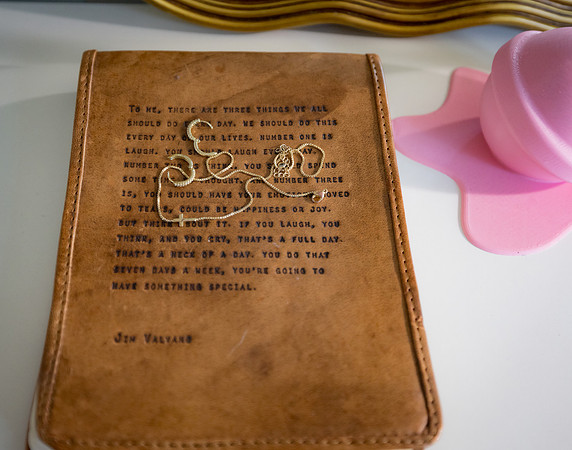 To me, there are three things we all
should do day. We should do this
every day of our lives. Number one is
laugh. You should laugh day.
Number is You should spend
some thought. Number three
is, you should have your moved
to could be happiness or joy.
But think about it. If you laugh, you
think, and you cry, that's a full day.
That's a heck of a day. You do that
seven days a week, you're going to
have something special.
Jim Valvano